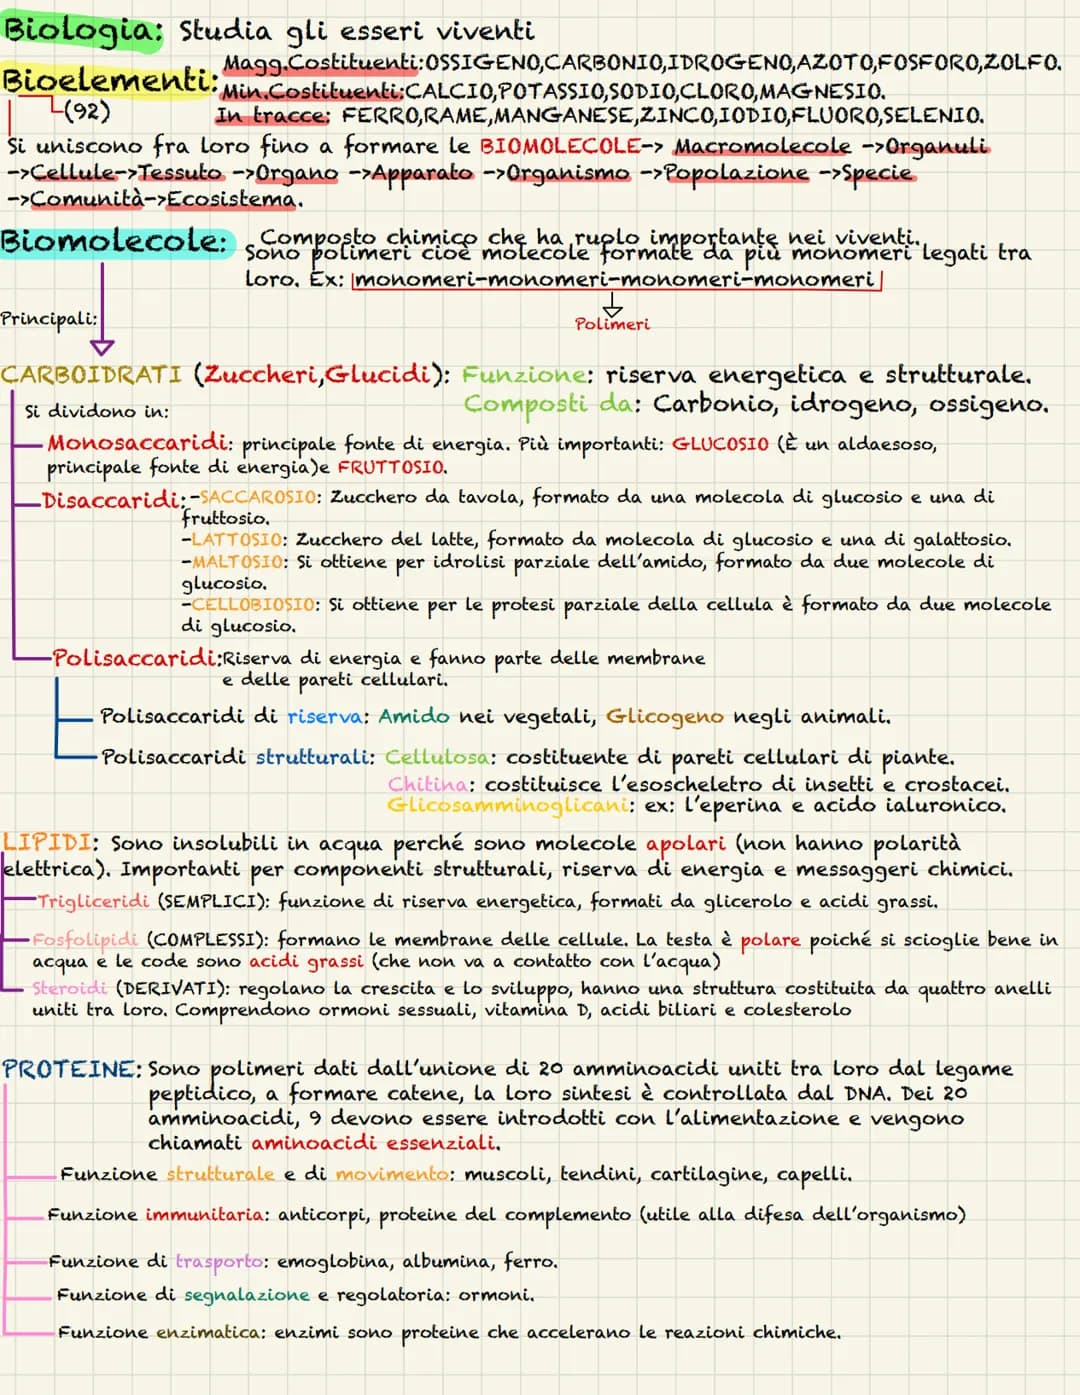 Biologia: Studia gli esseri viventi
Bioelementi: Magg.Costituenti:OSSIGENO,CARBONIO,IDROGENO,AZOTO,FOSFORO,ZOLFO.
Min.Costituenti:CALCIO,POTASSIO,SODIO,CLORO,MAGNESIO.
(92) In tracce: FERRO,RAME,MANGANESE,ZINCO,IODIO,FLUORO,SELENIO.
Si uniscono fra loro fino a formare le BIOMOLECOLE-> Macromolecole ->Organuli
->Cellule->Tessuto ->Organo ->Apparato ->Organismo ->Popolazione ->Specie
->Comunità->Ecosistema.
Biomolecole: Composto chimico che ha ruolo importante nei viventi.
Sono polimeri cioè molecole formate da più monomeri legati tra
loro. Ex: monomeri-monomeri-monomeri-monomeri
Principali:
Polimeri
CARBOIDRATI (Zuccheri,Glucidi): Funzione: riserva energetica e strutturale.
Si dividono in: Composti da: Carbonio, idrogeno, ossigeno.
Monosaccaridi: principale fonte di energia. Più importanti: GLUCOSIO (È un aldaesoso,
principale fonte di energia)e FRUTTOSIO.
Disaccaridi:-SACCAROSIO: Zucchero da tavola, formato da una molecola di glucosio e una di
fruttosio.
-LATTOSIO: Zucchero del latte, formato da molecola di glucosio e una di galattosio.
-MALTOSIO: Si ottiene per idrolisi parziale dell'amido, formato da due molecole di
glucosio.
-CELLOBIOSIO: Si ottiene per le protesi parziale della cellula è formato da due molecole
di glucosio.
Polisaccaridi:Riserva di energia e fanno parte delle membrane
e delle pareti cellulari.
Polisaccaridi di riserva: Amido nei vegetali, Glicogeno negli animali.
Polisaccaridi strutturali: Cellulosa: costituente di pareti cellulari di piante.
Chitina: costituisce l'esoscheletro di insetti e crostacei.
Glicosamminoglicani: ex: l'eperina e acido ialuronico.
LIPIDI: Sono insolubili in acqua perché sono molecole apolari (non hanno polarità
elettrica). Importanti per componenti strutturali, riserva di energia e messaggeri chimici.
Trigliceridi (SEMPLICI): funzione di riserva energetica, formati da glicerolo e acidi grassi.
Fosfolipidi (COMPLESSI): formano le membrane delle cellule. La testa è polare poiché si scioglie bene in
acqua e le code sono acidi grassi (che non va a contatto con l'acqua)
Steroidi (DERIVATI): regolano la crescita e lo sviluppo, hanno una struttura costituita da quattro anelli
uniti tra loro. Comprendono ormoni sessuali, vitamina D, acidi biliari e colesterolo
PROTEINE: Sono polimeri dati dall'unione di 20 amminoacidi uniti tra loro dal legame
peptidico, a formare catene, la loro sintesi è controllata dal DNA. Dei 20
amminoacidi, 9 devono essere introdotti con l'alimentazione e vengono
chiamati aminoacidi essenziali.
Funzione strutturale e di movimento: muscoli, tendini, cartilagine, capelli.
Funzione immunitaria: anticorpi, proteine del complemento (utile alla difesa dell'organismo)
Funzione di trasporto: emoglobina, albumina, ferro.
Funzione di segnalazione e regolatoria: ormoni.
Funzione enzimatica: enzimi sono proteine che accelerano le reazioni chimiche.